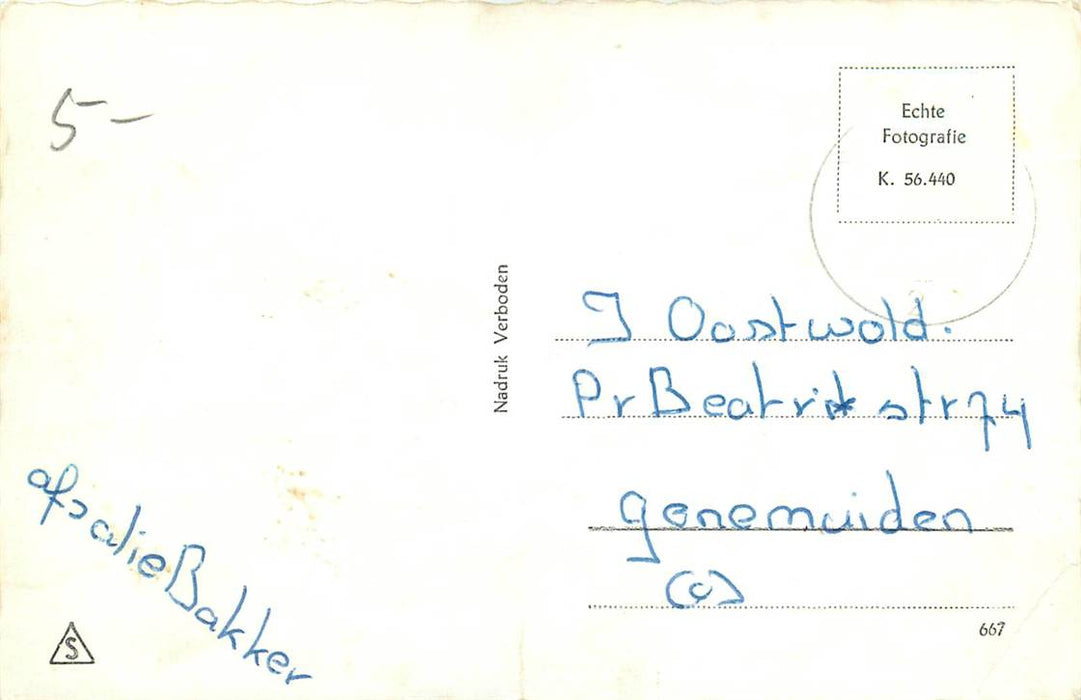 5-
Echte
Fotografie
K. 56.440
Nadruk Verboden
J Oostwold.
Pr Beatrix str 74
genemuiden
(O)
afs alie Bakker
S
667